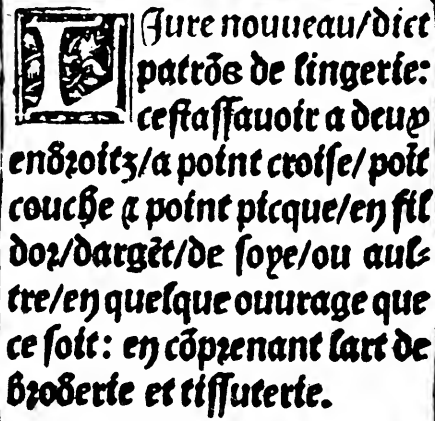 LIure nouueau/dict
patrõs de lingerie:
cestassauoir a deux
endroitz/a point croise/poĩt
couche ⁊ point picque/en fil
dor/dargẽt/de soye/ou aul-
tre/en quelque ouurage que
ce soit: en cõprenant lart de
broderie et tissuterie.